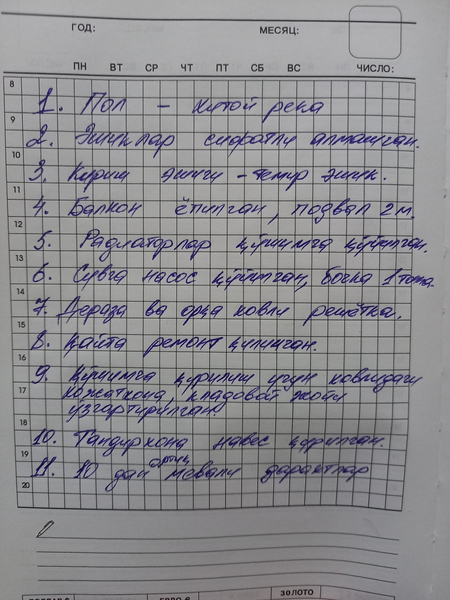 ГОД: МЕСЯЦ:
ПН ВТ СР ЧТ ПТ СБ ВС ЧИСЛО:
8
1. Пол - китой река
9
2. Эшиклар сифатли алмашган.
10
3. Кириш эшиги - темир эшик.
11
4. Балкон ёпилган, подвал 2м.
12
5. Радиаторлар қўшимча қўйилган.
13
6. Сувга насос қўйилган, бочка 1 тонна.
14
7. Дераза ва орқа ховли решётка.
15
8. Қайта ремонт қилинган.
16
9. Қўшимча қурилиш учун ховлидаги
17
хожатхона, кладовой жойи
узгартирилган.
18
10. Тандирхона навес қурилган.
19
ортиқ
11. 10 дан мевали дарахтлар
20
ЗОЛОТО